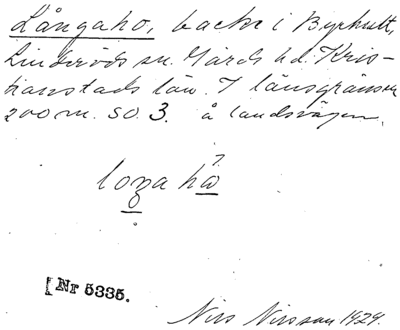 Långaho, backe i Byrhult,
Linderöds sn. Gärds hd. Kris-
tianstads län. I länsgränsen
200 m. SO. 3. å landsvägen.
loŋahω
[Nr 5335.
Nils Nilsson 1929.